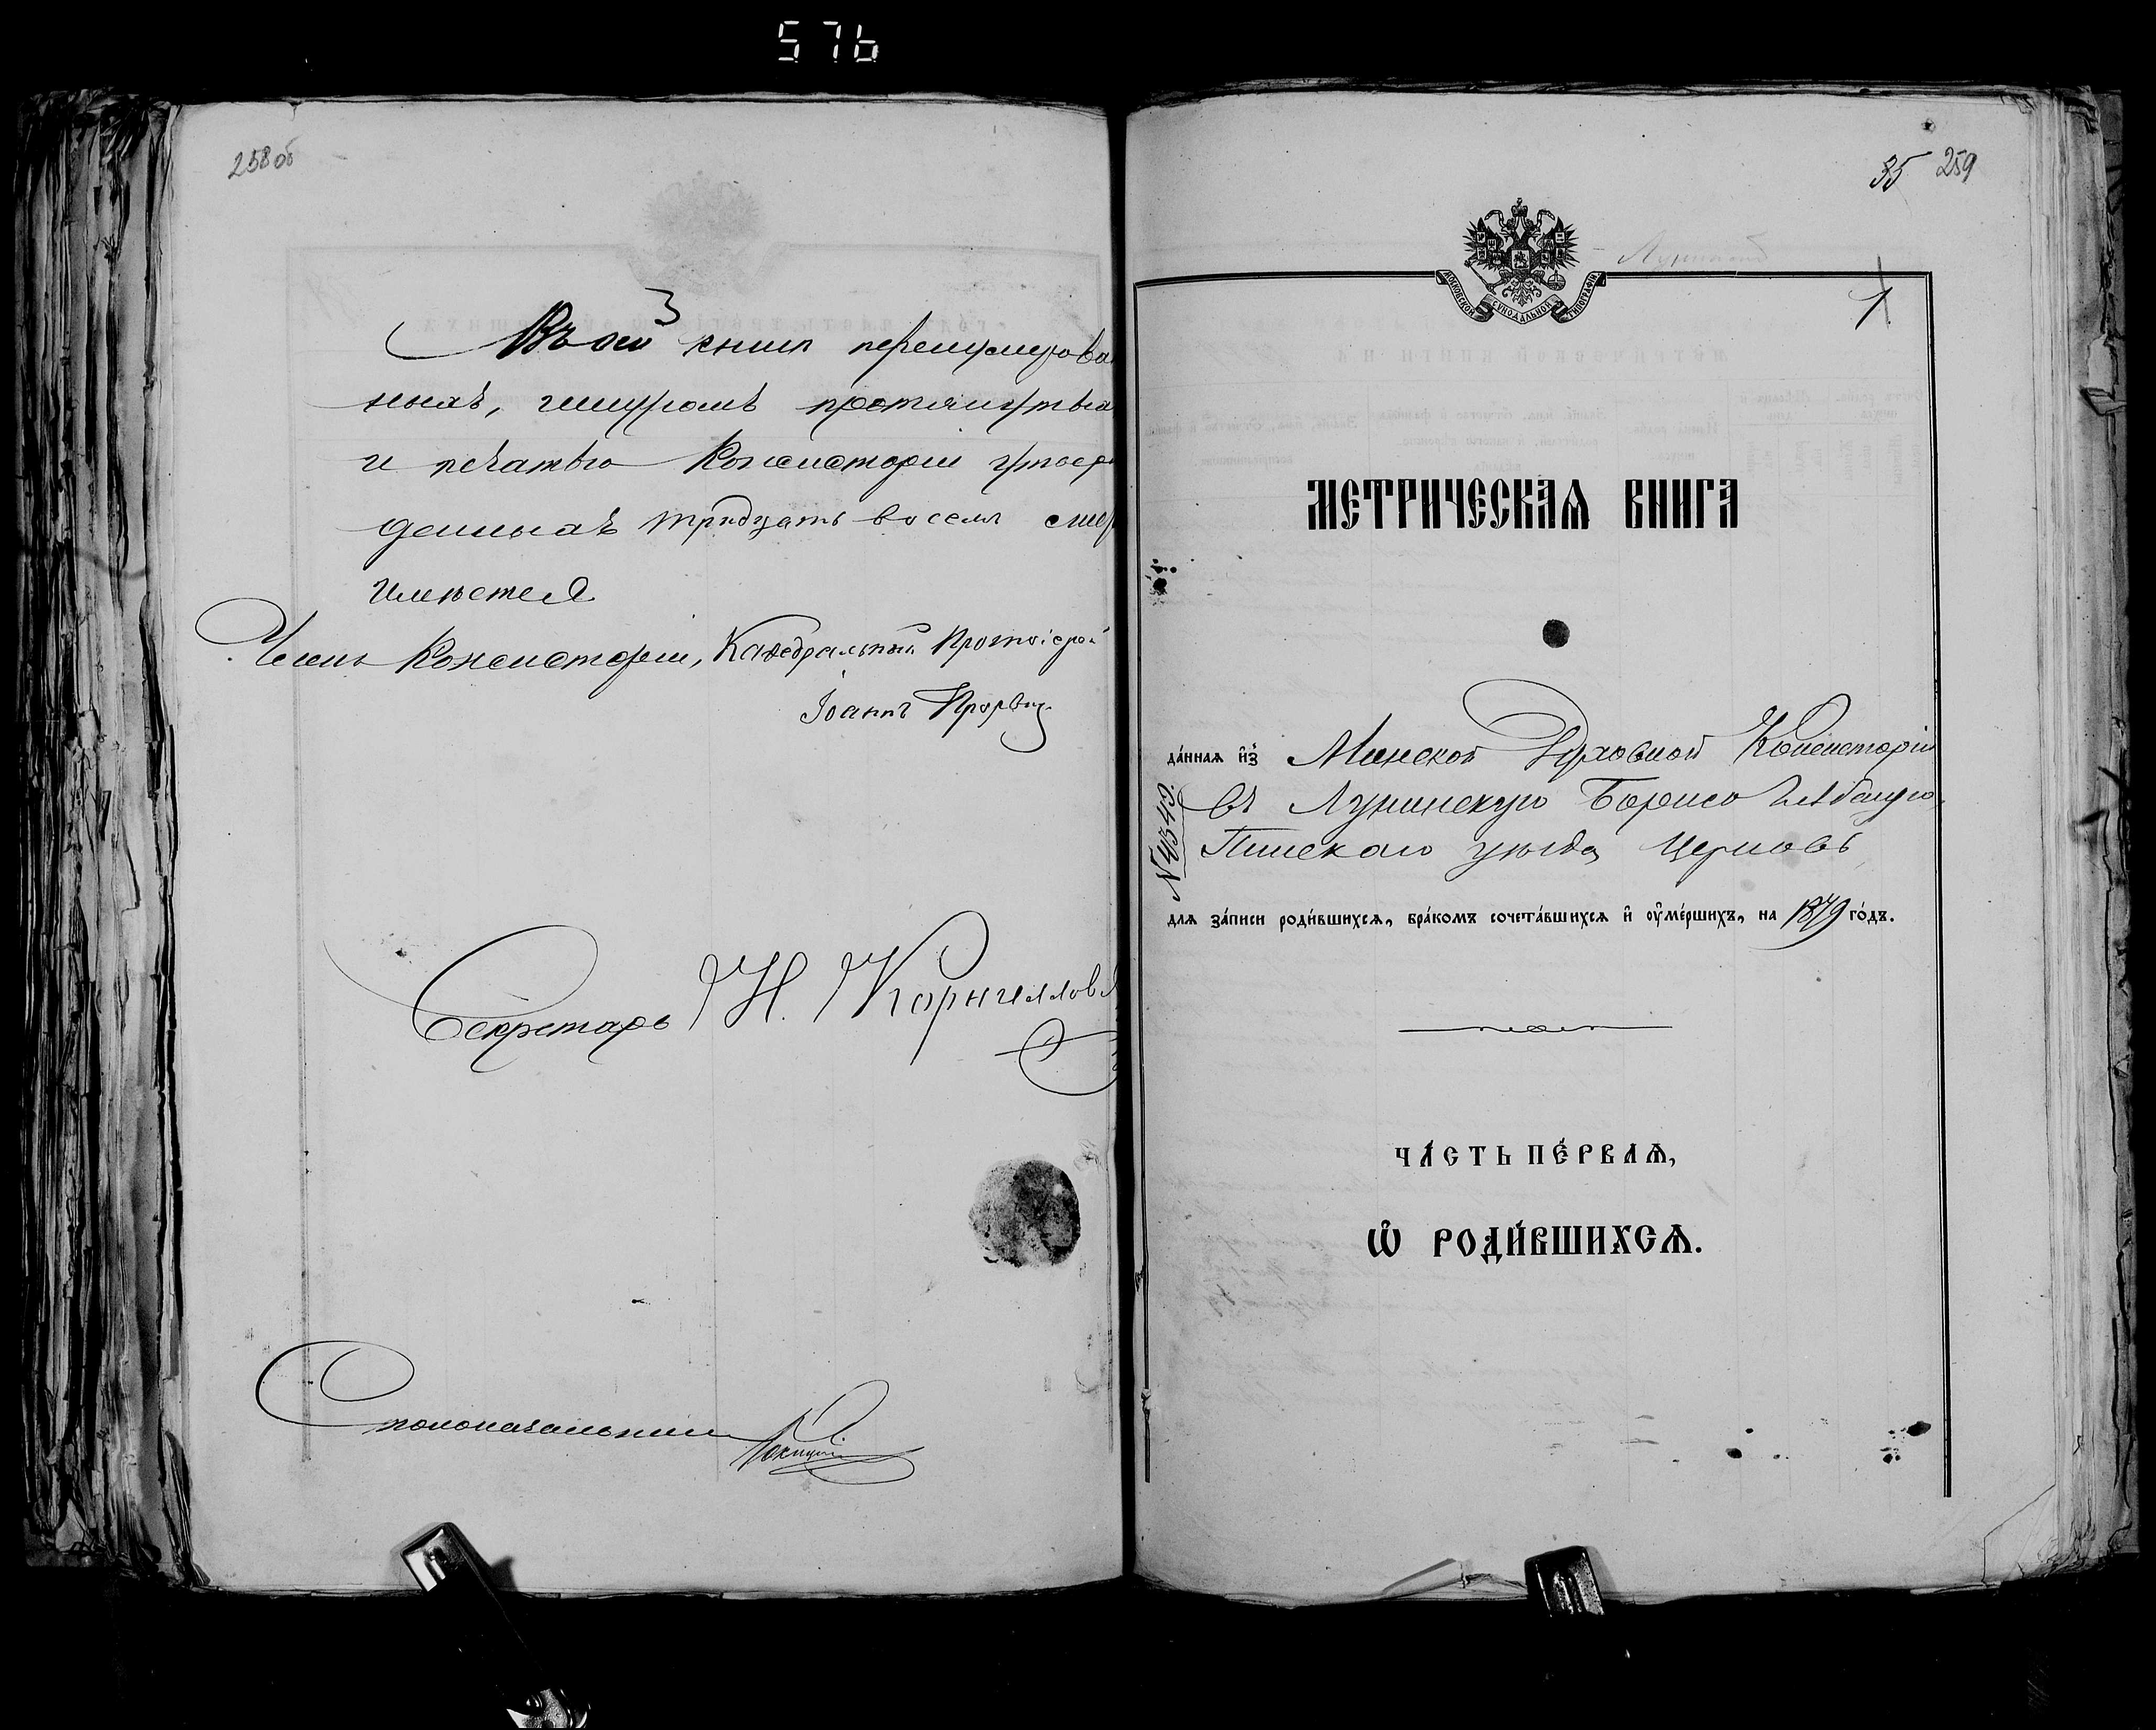 576
258 об
Въ сей книгѣ перенумерова
ныхъ, шнуромъ протянутыхъ
и печатью Консисторіи утвер
денныхъ тридцать восемь
имѣется
Членъ Консисторіи, Каѳедральный Протоіерей
Іоаннъ
Секретарь Н. Корнилов
Столоначальник
35 259
МОСКОВСКОЙ СѴНОДАЛЬНОЙ ТИПОГРАФІИ
1
МЕТРИЧЕСКАѦ КНИГА
да́ннаѧ и҆з̾ Минской Духовной Консисторіи
въ Лунинскую Борисо Глѣбскую
Пинскаго уѣзда Церковь
№ 4349.
длѧ за́писи роди́вшихсѧ, бра́комъ сочета́вшихсѧ и҆ ᲂу҆ме́ршихъ, на 1879 го́дъ.
ЧА́СТЬ ПЕ́РВАѦ,
Ѡ҆ РОДИ́ВШИХСѦ.